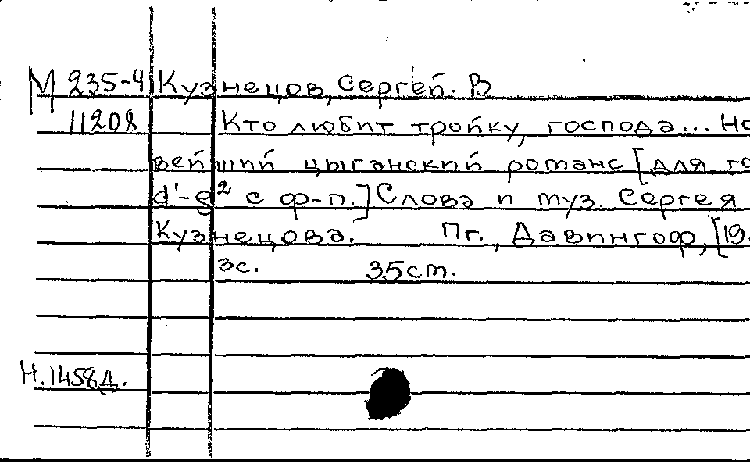 М 235-4 Кузнецов, Сергей. В
11208 Кто любит тройку, господа... Но
вейший цыганский романс [для го
d'-g² с ф-п.] Слова и муз. Сергея
Кузнецова. Пг., Давингоф, [19
3с. 35ст.
Н.1458д.